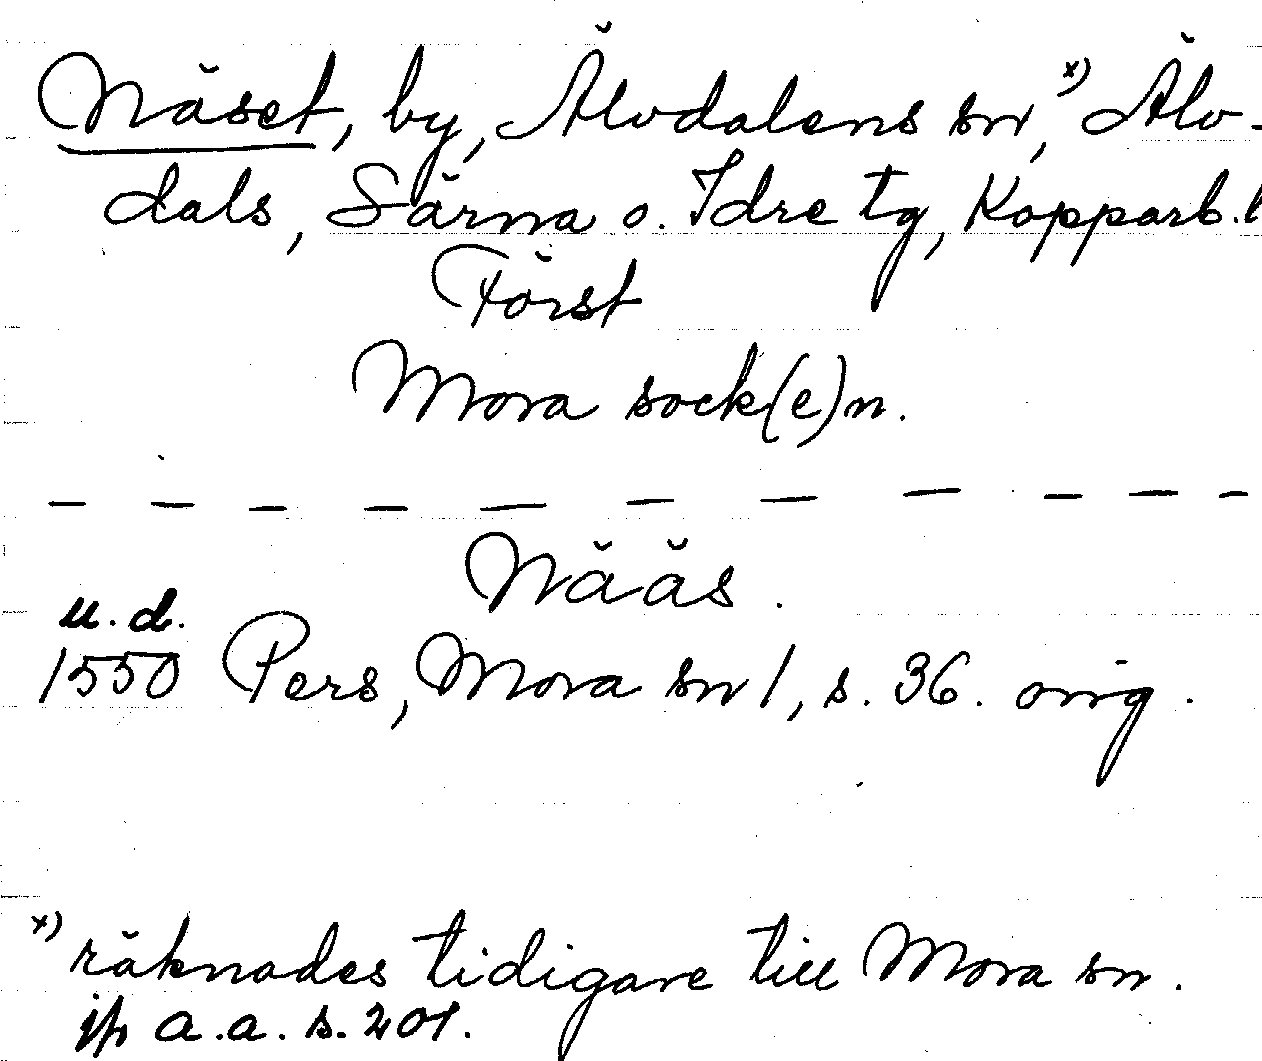 Näset, by, Älvdalens sn, x) Älv-
dals, Särna o. Idre tg, Kopparb. l
Först
Mora sock(e)n.
— — — — — — — — — — —
Nääs.
u.d.
1550 Pers, Mora sn 1, s. 36. orig.
x) räknades tidigare till Mora sn.
jfr a.a. s. 201.